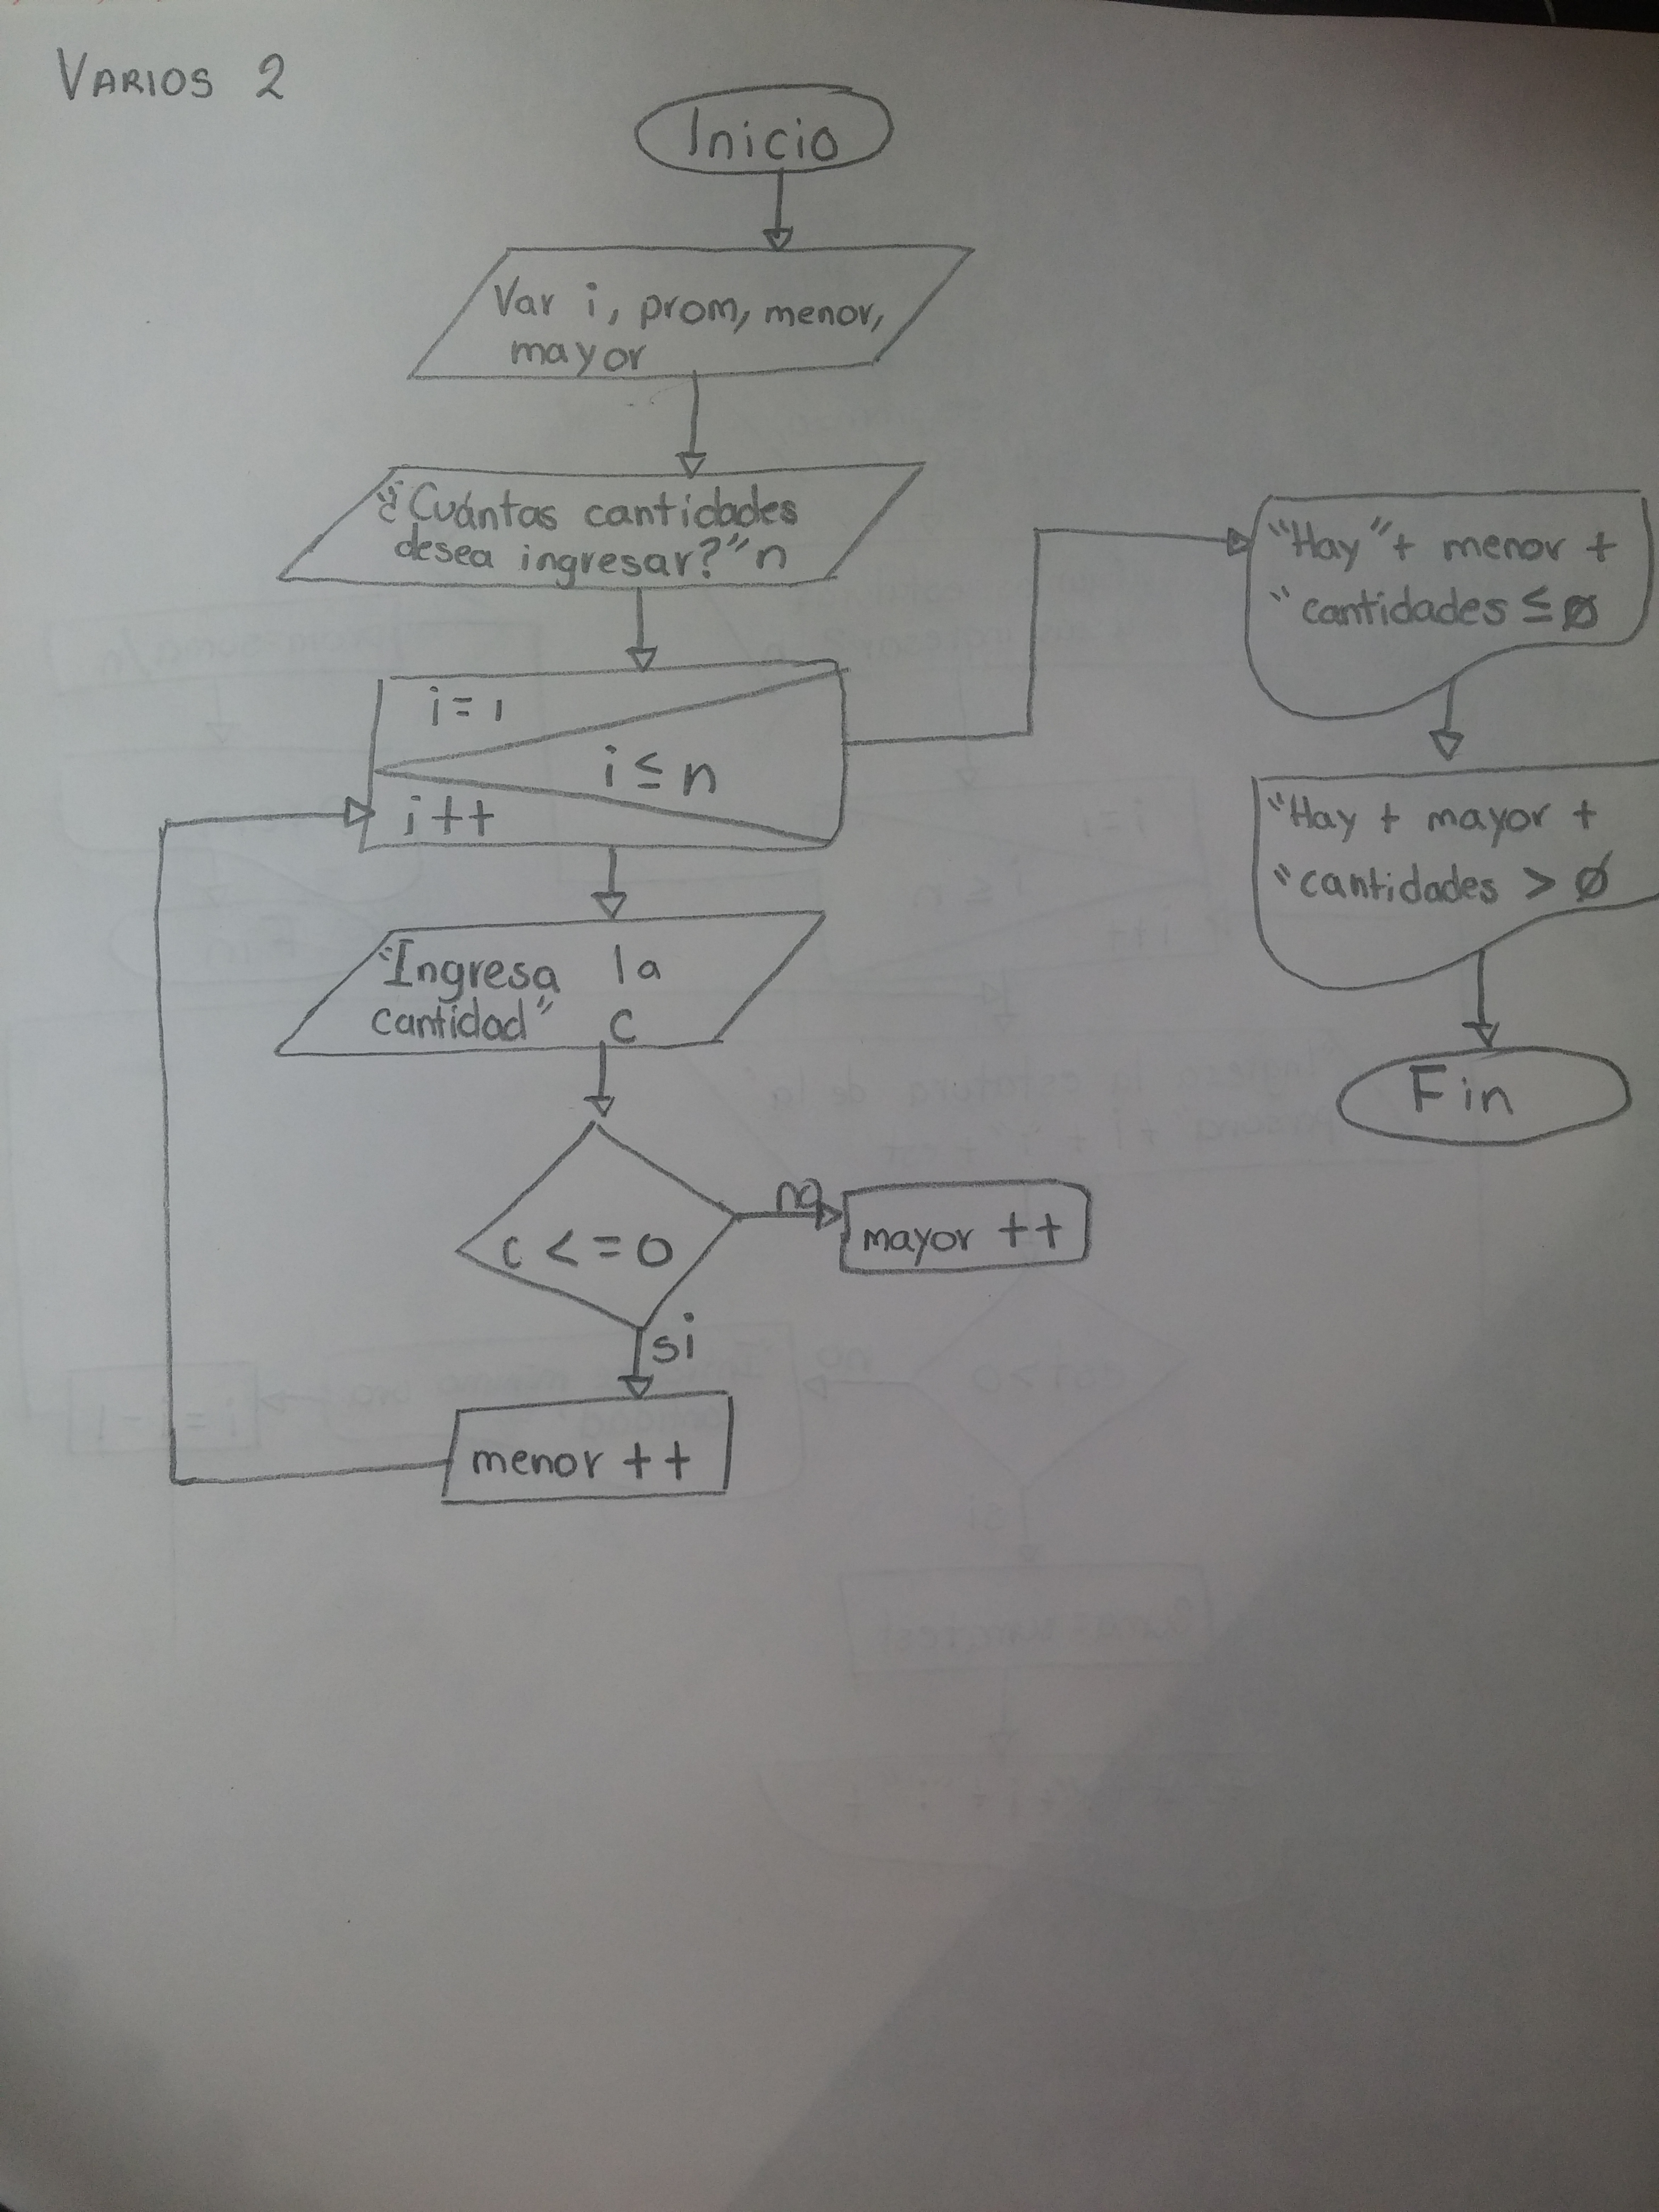 VARIOS 2
Inicio
Var i, prom, menor,
mayor
"¿Cuántas cantidades
desea ingresar?" n
i=1
i≤n
i++
"Ingresa la
cantidad" c
c <= 0
no
mayor ++
si
menor ++
"Hay" + menor +
"cantidades ≤ Ø
"Hay + mayor +
"cantidades > Ø
Fin